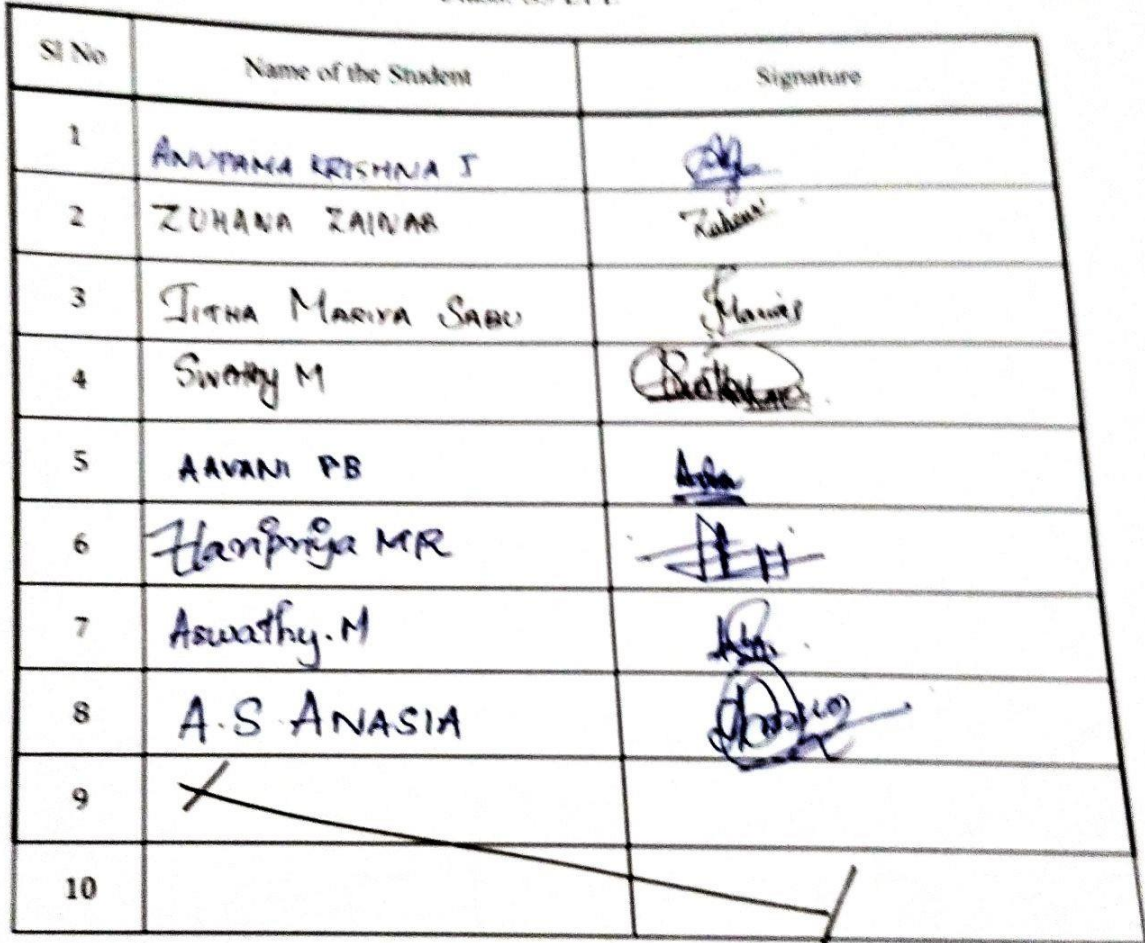 Sl No Name of the Student Signature
1 ANUPAMA KRISHNA J
2 ZUHANA ZAINAB Zuhana
3 JITHA MARIYA SABU
4 Swathy M
5 AAVANI PB
6 Haripriya MR
7 Aswathy.M
8 A.S ANASIA
9
10